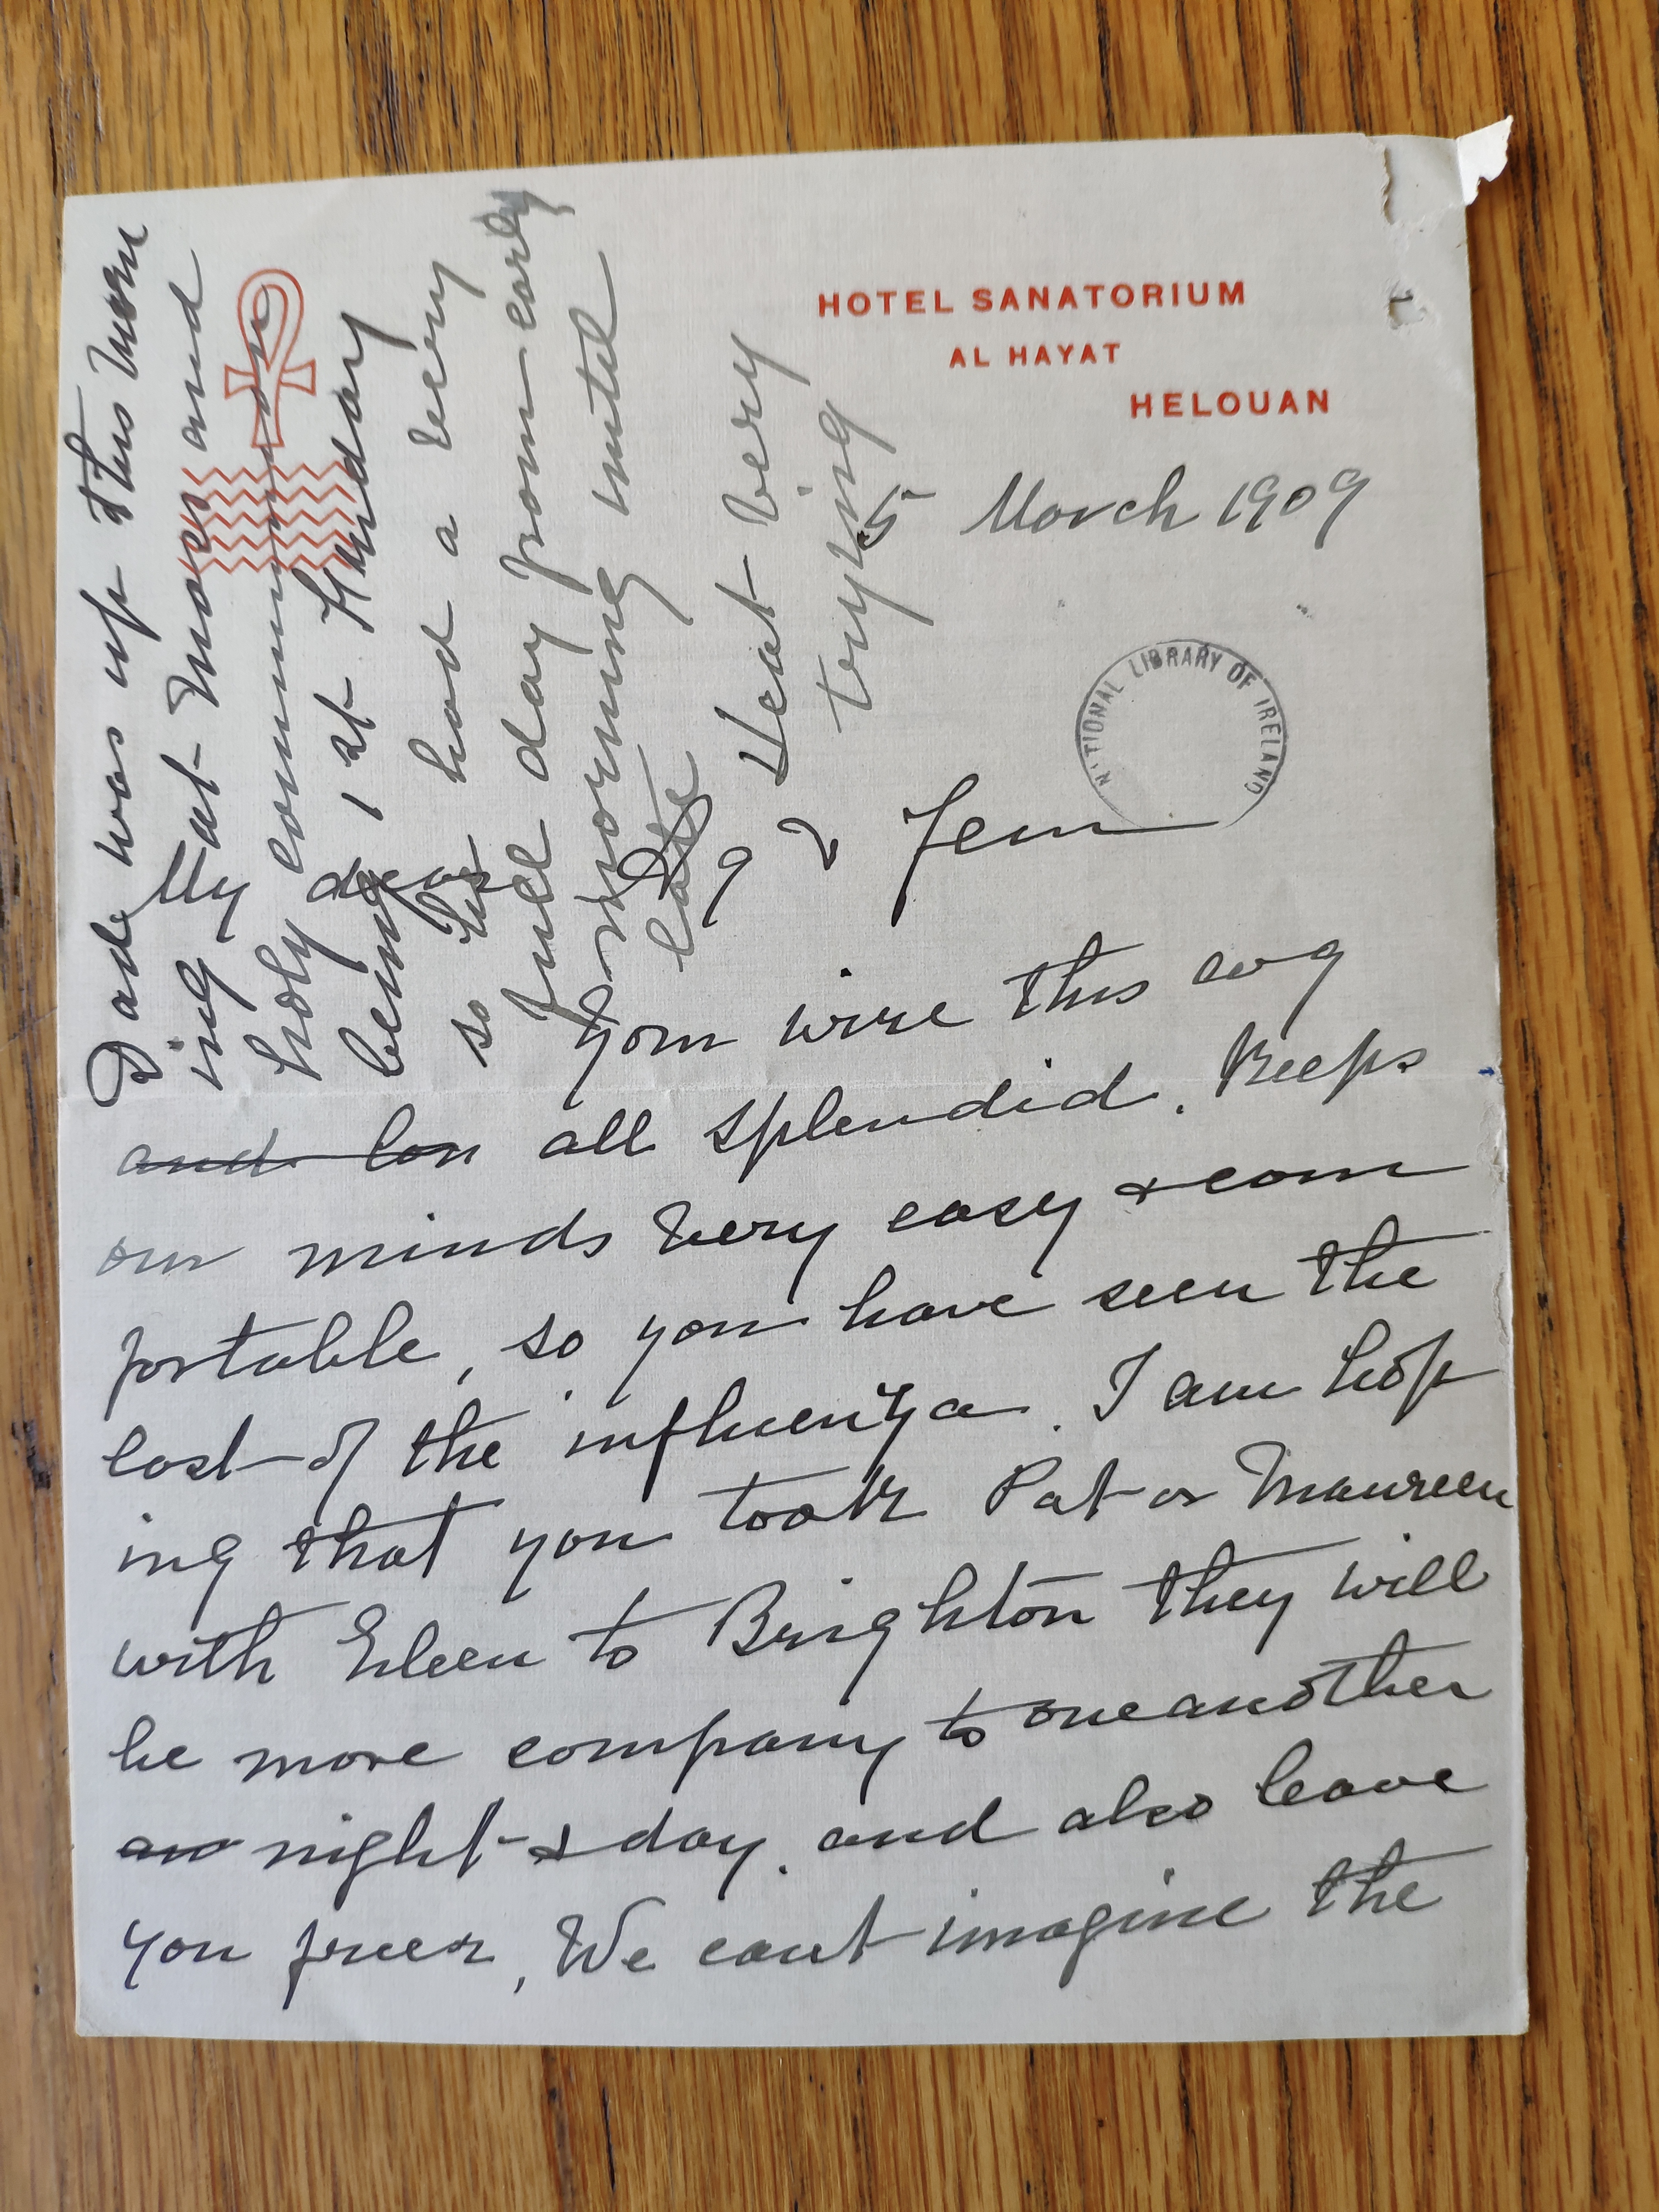 HOTEL SANATORIUM
AL HAYAT
HELOUAN
5 March 1909
NATIONAL LIBRARY OF IRELAND
My dear & Jem
Your wire this avg
and con all splendid. Keeps
our minds very easy & com
fortable, so you have seen the
last of the influenza. I am hop
ing that you took Pat or Maureen
with Eileen to Brighton they will
be more company to one another
an night & day. and also leave
you freer, We cant imagine the
Dade was up this morn
ing at Mass and
holy communion
being 1st Friday
so has had a very
full day from early
morning until
late
Heat very
trying